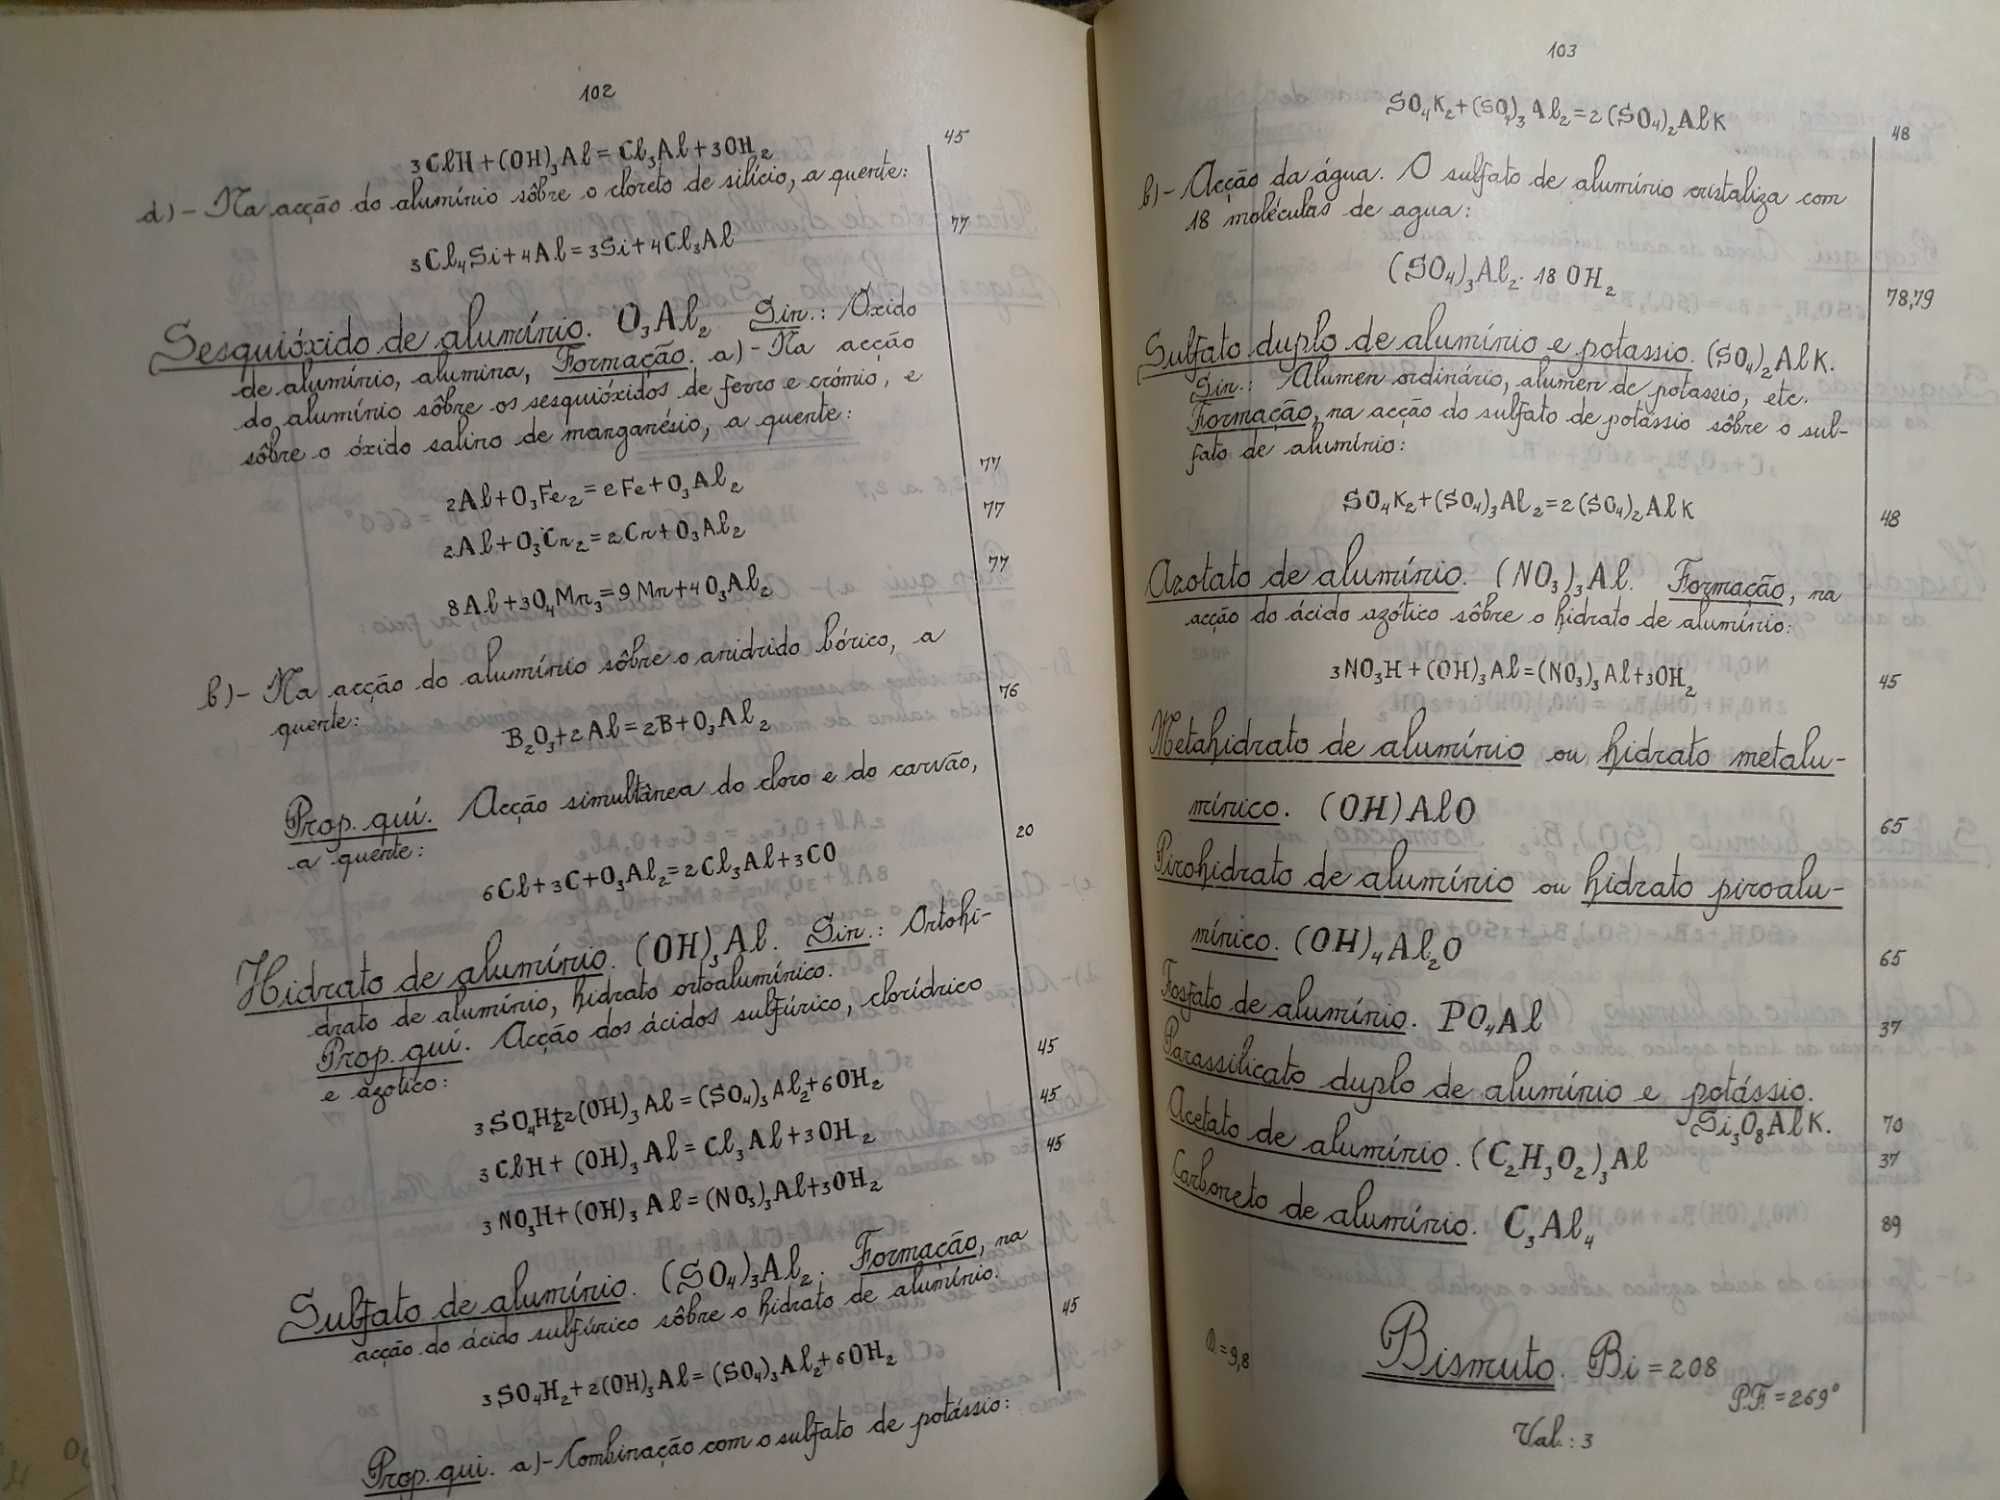 102
3ClH+(OH)₃Al=Cl₃Al+3OH₂ 45
d)-Na acção do alumínio sôbre o cloreto de silício, a quente:
3Cl₄Si+4Al=3Si+4Cl₃Al 77
Sesquióxido de alumínio. O₃Al₂ Sin.: Óxido
de alumínio, alumina, Formação. a)-Na acção
do alumínio sôbre os sesquióxidos de ferro e crómio, e
sôbre o óxido salino de manganésio, a quente:
2Al+O₃Fe₂=2Fe+O₃Al₂ 77
2Al+O₃Cr₂=2Cr+O₃Al₂ 77
8Al+3O₄Mn₃=9Mn+4O₃Al₂ 77
b)-Na acção do alumínio sôbre o anidrido bórico, a
quente:
B₂O₃+2Al=2B+O₃Al₂ 76
Prop. quí. Acção simultânea do cloro e do carvão,
a quente:
6Cl+3C+O₃Al₂=2Cl₃Al+3CO 20
Hidrato de alumínio. (OH)₃Al. Sin.: Ortohi-
drato de alumínio, hidrato ortoalumínico.
Prop. quí. Acção dos ácidos sulfúrico, clorídrico
e azotico:
3SO₄H₂+2(OH)₃Al=(SO₄)₃Al₂+6OH₂ 45
3ClH+(OH)₃Al=Cl₃Al+3OH₂ 45
3NO₃H+(OH)₃Al=(NO₃)₃Al+3OH₂ 45
Sulfato de alumínio. (SO₄)₃Al₂. Formação, na
acção do ácido sulfúrico sôbre o hidrato de alumínio.
3SO₄H₂+2(OH)₃Al=(SO₄)₃Al₂+6OH₂ 45
Prop. qui. a)-Combinação com o sulfato de potássio:
103
SO₄K₂+(SO₄)₃Al₂=2(SO₄)₂AlK 48
b)-Acção da água. O sulfato de alumínio cristaliza com
18 moléculas de agua:
(SO₄)₃Al₂.18OH₂ 78,79
Sulfato duplo de alumínio e potassio. (SO₄)₂AlK.
Sin.: Alumen ordinário, alumen de potassio, etc.
Formação, na acção do sulfato de potássio sôbre o sul-
fato de alumínio:
SO₄K₂+(SO₄)₃Al₂=2(SO₄)₂AlK 48
Azotato de alumínio. (NO₃)₃Al. Formação, na
acção do ácido azótico sôbre o hidrato de alumínio:
3NO₃H+(OH)₃Al=(NO₃)₃Al+3OH₂ 45
Metahidrato de alumínio ou hidrato metalu-
mínico. (OH)AlO 65
Pirohidrato de alumínio ou hidrato piroalu-
mínico. (OH)₄Al₂O 65
Fosfato de alumínio. PO₄Al 37
Parassilicato duplo de alumínio e potássio.
Si₃O₈AlK. 70
Acetato de alumínio. (C₂H₃O₂)₃Al 37
Carboneto de alumínio. C₃Al₄ 89
D=9,8 Bismuto. Bi=208
P.F.=269°
Val.: 3